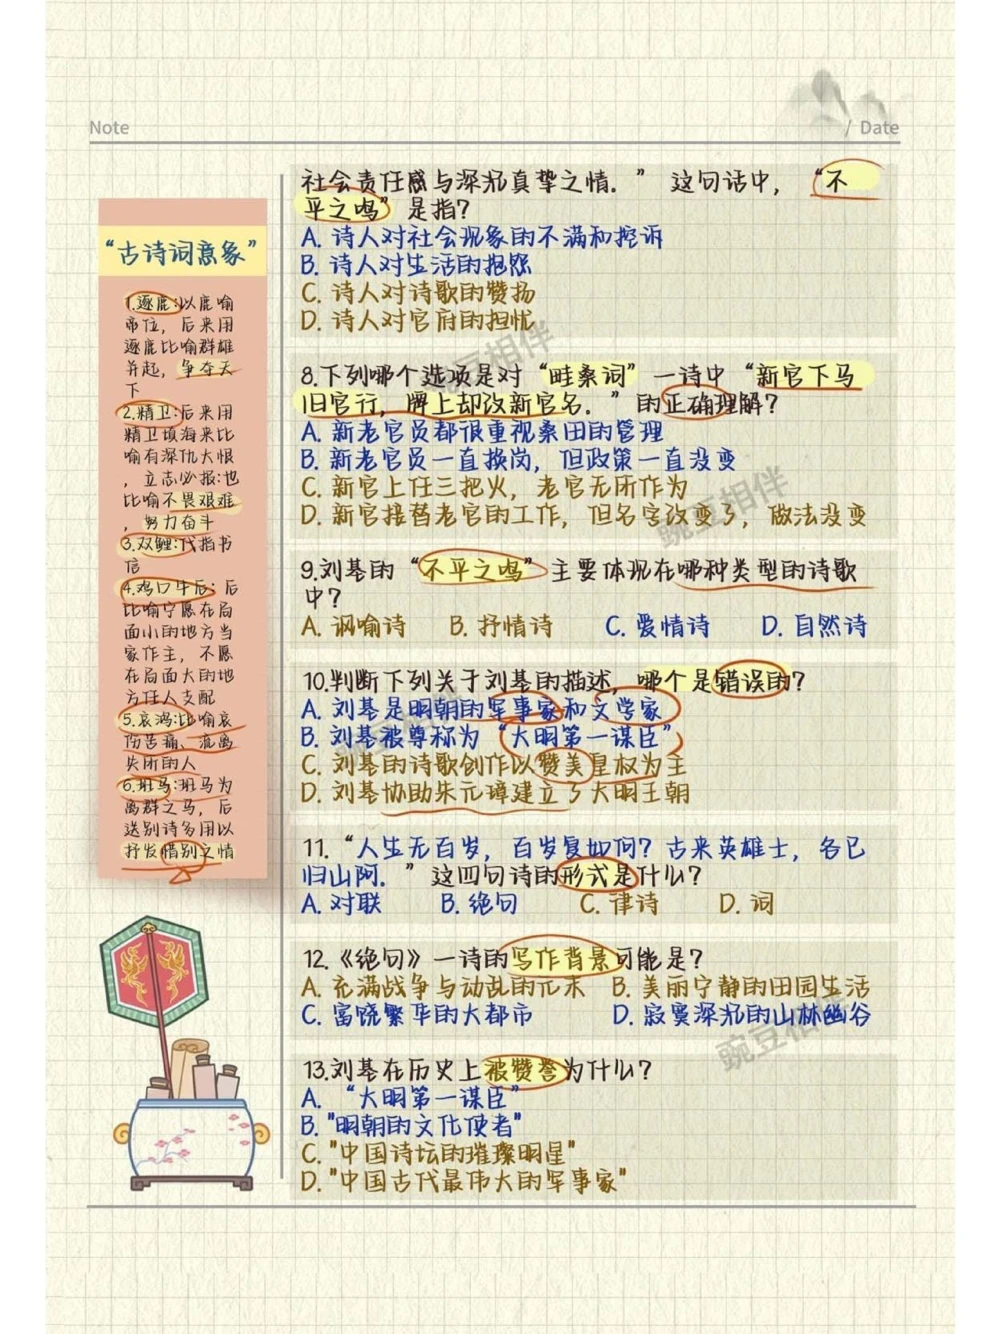 Note
/ Date
“古诗词意象”
1.逐鹿:以鹿喻
帝位，后来用
逐鹿比喻群雄
并起，争夺天
下
2.精卫:后来用
精卫填海来比
喻有深仇大恨
，立志必报:也
比喻不畏艰难
，努力奋斗
3.双鲤:代指书
信
4.鸡口牛后：后
比喻宁愿在局
面小的地方当
家作主，不愿
在局面大的地
方任人支配
5.哀鸿:比喻哀
伤苦痛、流离
失所的人
6.班马:班马为
离群之马，后
送别诗多用以
抒发惜别之情
社会责任感与深沉真挚之情．” 这句话中，“不
平之鸣”是指?
A. 诗人对社会现象的不满和控诉
B. 诗人对生活的抱怨
C. 诗人对诗歌的赞扬
D. 诗人对官府的担忧
8.下列哪个选项是对“畦桑词”一诗中“新官下马
旧官行，牌上却改新官名．”的正确理解?
A. 新老官员都很重视桑田的管理
B. 新老官员一直换岗，但政策一直没变
C. 新官上任三把火，老官无所作为
D. 新官接替老官的工作，但名字改变了，做法没变
9.刘基的“不平之鸣”主要体现在哪种类型的诗歌
中?
A. 讽喻诗 B. 抒情诗 C. 爱情诗 D. 自然诗
10.判断下列关于刘基的描述，哪个是错误的?
A. 刘基是明朝的军事家和文学家
B. 刘基被尊称为“大明第一谋臣”
C. 刘基的诗歌创作以赞美皇权为主
D. 刘基协助朱元璋建立了大明王朝
11.“人生无百岁，百岁复如何? 古来英雄士，各已
归山阿．”这四句诗的形式是什么?
A. 对联 B. 绝句 C. 律诗 D. 词
12.《绝句》一诗的写作背景可能是?
A. 充满战争与动乱的元末 B. 美丽宁静的田园生活
C. 富饶繁华的大都市 D. 寂寞深沉的山林幽谷
13.刘基在历史上被赞誉为什么?
A. “大明第一谋臣”
B. "明朝的文化使者"
C. "中国诗坛的璀璨明星"
D. "中国古代最伟大的军事家"
豌豆相伴
豌豆相伴
豌豆相伴